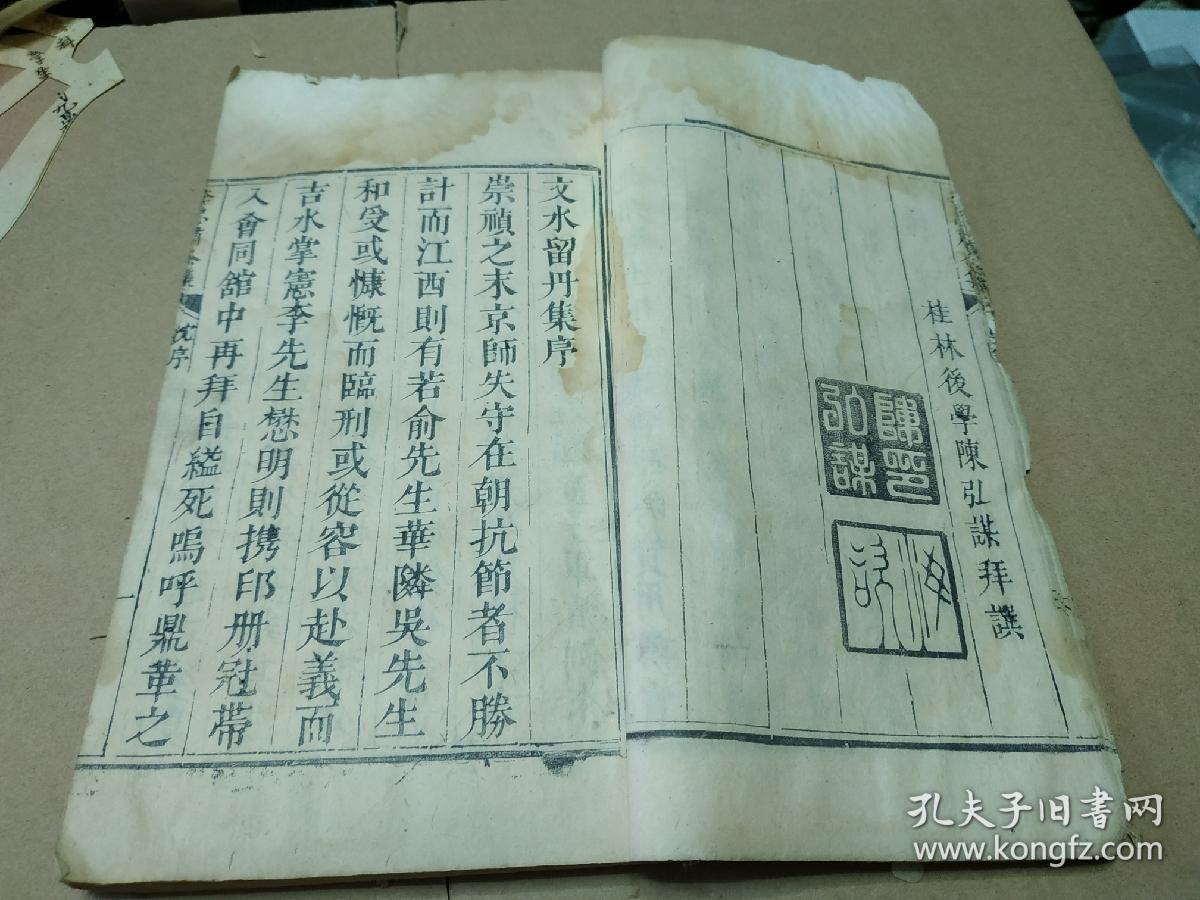 桂林後學陳弘謀拜譔
陳弘謀印
文水留丹集序
崇禎之末京師失守在朝抗節者不勝
計而江西則有若俞先生華隣吳先生
和受或慷慨而臨刑或從容以赴義而
吉水掌憲李先生懋明則携印册冠帶
入會同舘中再拜自縊死嗚呼鼎革之
沈序
一
孔夫子旧书网
www.kongfz.com